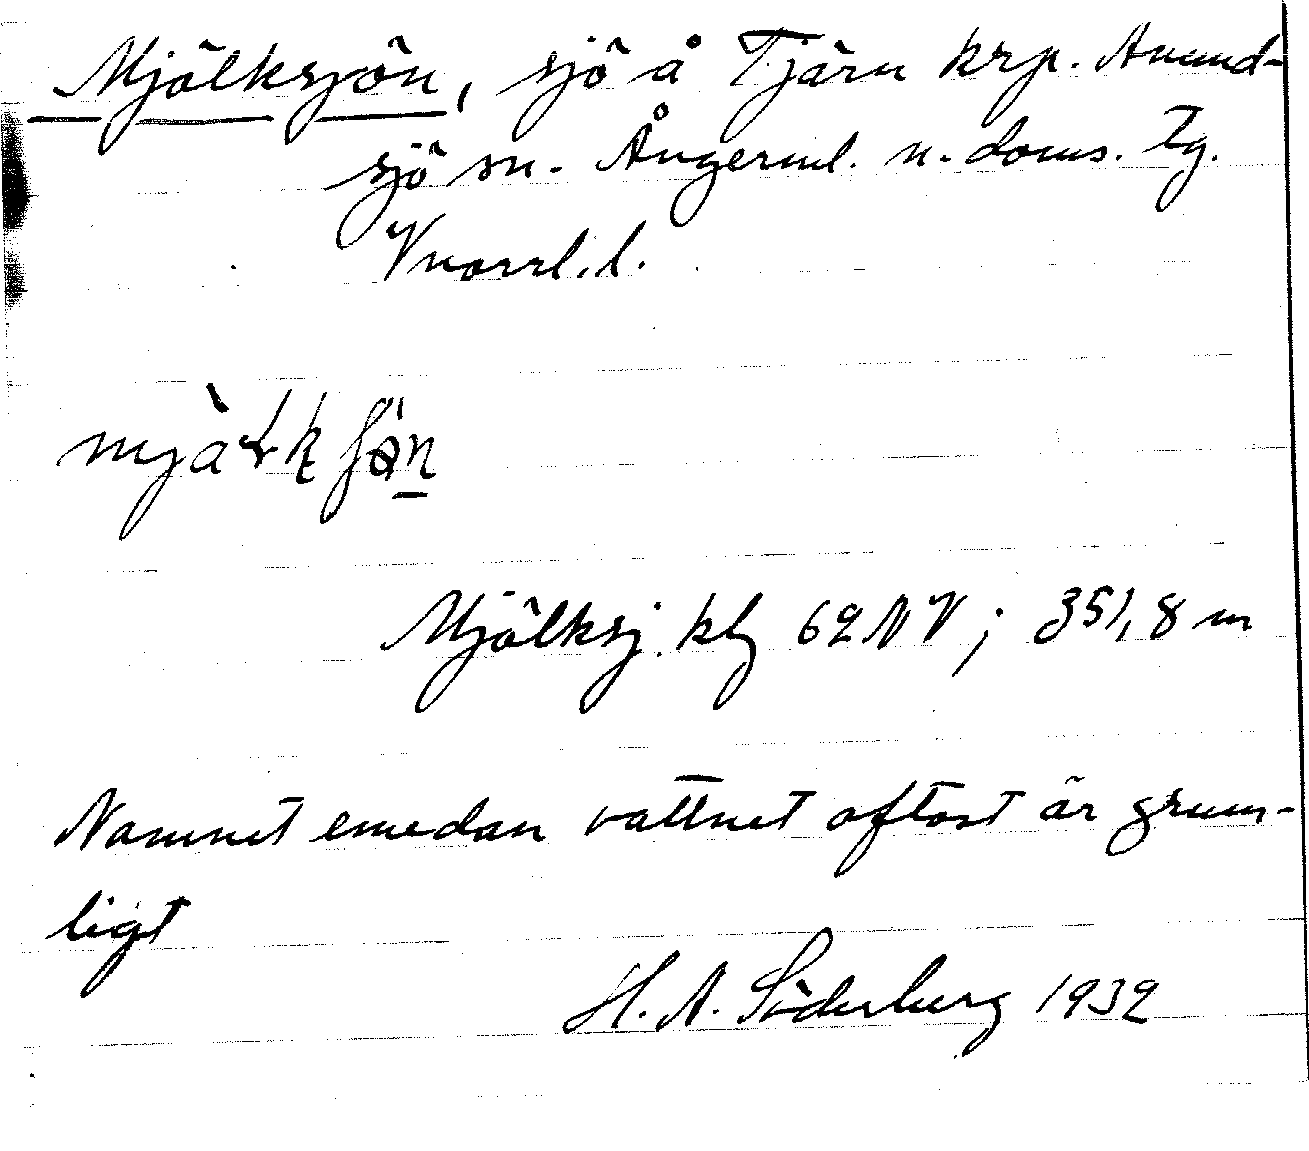 Mjölksjön, sjö å Tjärn krp. Anund-
sjö sn. Ångerml. n. doms. Tg.
Vnorrl. l.
Mjölksj. kbl 62 NV; 351,8 m
Namnet emedan vattnet oftast är grum-
ligt
H. A. Söderberg 1932